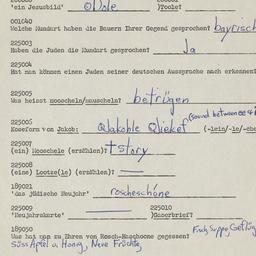 'ein Jesuzbild' )Tosle?
001040
Welche Mundart haben die Bauern Ihrer Gegend gesprochen? bayrisch
225003
Haben die Juden die Mundart gesprochen? Ja
225004
Hat man können einen Juden seiner deutschen Aussprache nach erkennen?
225005
Was heisst mooscheln/muuscheln? betrügen
225006 (sound between oe + i)
Koseform von Jakob: Jakoble (-lein/-le/-che
225007
(ein) Mooschele (erzählen): story
225008
(eine) Lootze(le) (erzählen):
189021
'das jüdische Neujahr' roscheschóne
225009 225010
'Neujahrskarte' )Gooerbrief?
189050 Fisch, Suppe, Geflüg
Was hat man zu Ihren von Rosch-Haschoone gegessen?
süss Äpfel u. Honig, Neue Früchte,